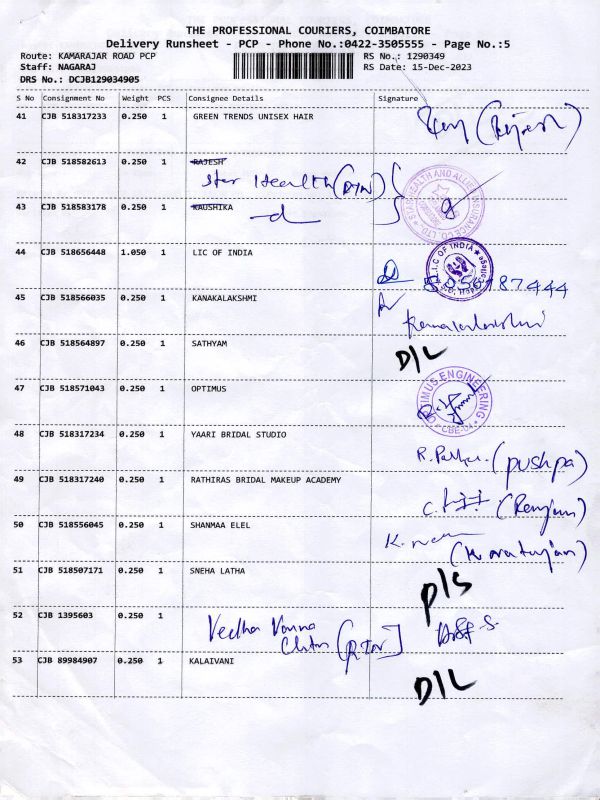 THE PROFESSIONAL COURIERS, COIMBATORE
Delivery Runsheet - PCP - Phone No.:0422-3505555 - Page No.:5
Route: KAMARAJAR ROAD PCP
Staff: NAGARAJ
DRS No.: DCJB129034905
RS No.: 1290349
RS Date: 15-Dec-2023
S No Consignment No Weight PCS Consignee Details Signature
41 CJB 518317233 0.250 1 GREEN TRENDS UNISEX HAIR
(Rajesh)
42 CJB 518582613 0.250 1 RAJESH
Star Health
43 CJB 518583178 0.250 1 KAUSHIKA
44 CJB 518656448 1.050 1 LIC OF INDIA
L.I.C OF INDIA
45 CJB 518566035 0.250 1 KANAKALAKSHMI
46 CJB 518564897 0.250 1 SATHYAM D/L
47 CJB 518571043 0.250 1 OPTIMUS
OPTIMUS ENGINEERING
CBE-04
48 CJB 518317234 0.250 1 YAARI BRIDAL STUDIO
(pushpa)
49 CJB 518317240 0.250 1 RATHIRAS BRIDAL MAKEUP ACADEMY
50 CJB 518556045 0.250 1 SHANMAA ELEL
51 CJB 518507171 0.250 1 SNEHA LATHA
52 CJB 1395603 0.250 1
53 CJB 89984907 0.250 1 KALAIVANI
D/L